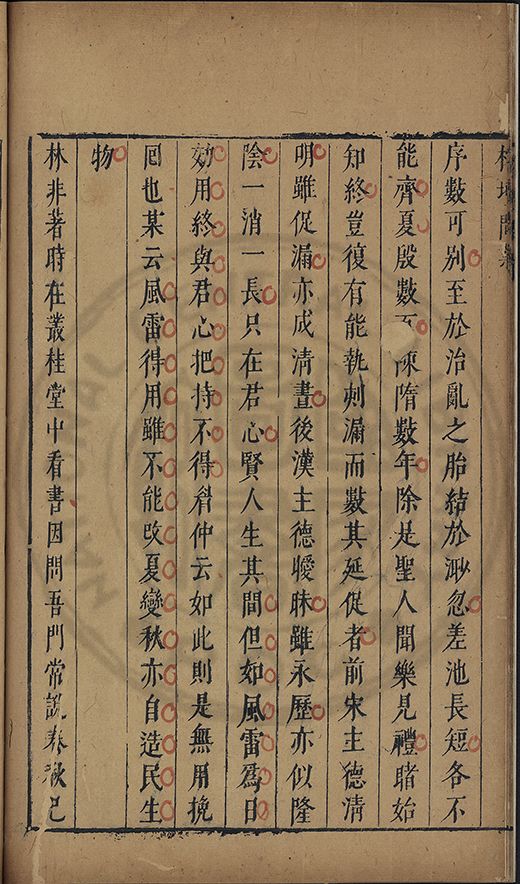 序數可別至於治亂之胎結於渺忽差池長短各不
能齊夏殷數百陳隋數年除是聖人聞樂見禮睹始
知終豈復有能執刺漏而數其延促者前宋主德清
明雖促漏亦成清晝後漢主德曖昧雖永歷亦似隆
陰一消一長只在君心賢人生其間但如風雷為日
効用終與君心把持不得君仲云如此則是無用挽
回也某云風雷得用雖不能改夏變秋亦自造民生
物
林非著時在叢桂堂中看書因問吾門常說春秋已